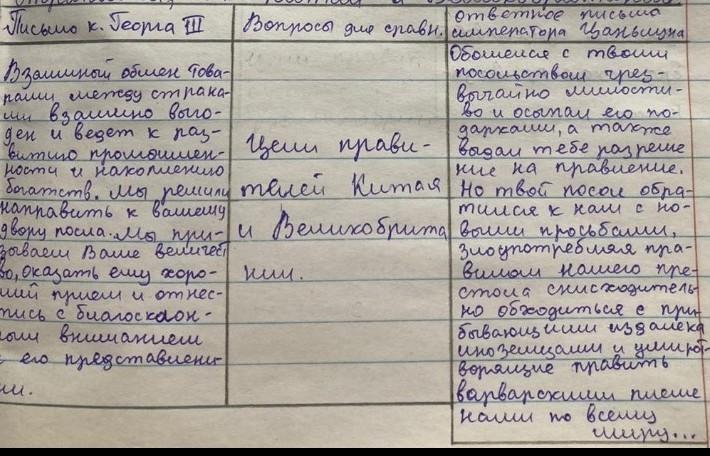 Письмо к. Георга III
Взаимный обмен това-
рами между страна-
ми взаимно выго-
ден и ведет к раз-
витию промышлен-
ности и накоплению
богатств. Мы решили
направить к вашему
двору посла. Мы при-
зываем Ваше величест
во, оказать ему хоро-
ший прием и отнес-
тись с благосклон-
ным вниманием
его представлени-
ям.
Вопросы для сравн.
Цели прави-
телей Китая
и Великобрита
нии.
ответное письма
императора Цаньлуна
Обошелся с твоим
посольством чрез-
вычайно милости-
во и осыпал его по-
дарками, а также
выдал тебе разреше
ние на правление.
Но твой посол обра-
тился к нам с но-
выми просьбами,
злоупотребляя пра-
вилом нашего пре-
стола снисходитель
но обходиться с при-
бывающими издалека
иноземцами и умирот
ворящие править
варварскими племе
нами по всему
миру...